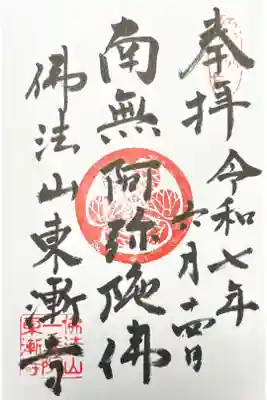 奉拝
令和七年
六月十四日
南無阿弥陀佛
佛法山東漸寺
佛法山
一乗院
東漸寺